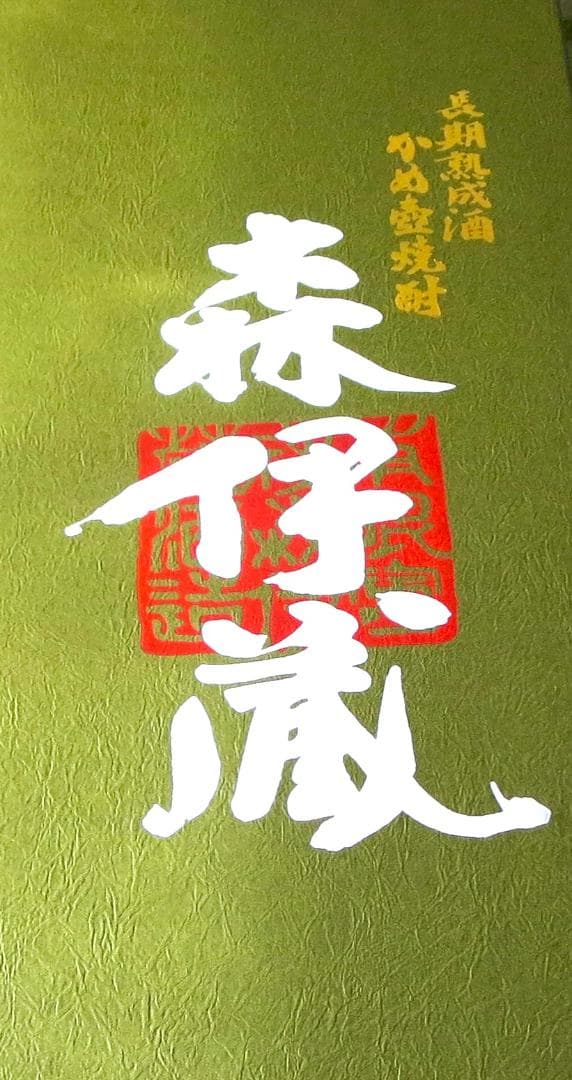 長期熟成酒
かめ壺焼酎
森伊蔵